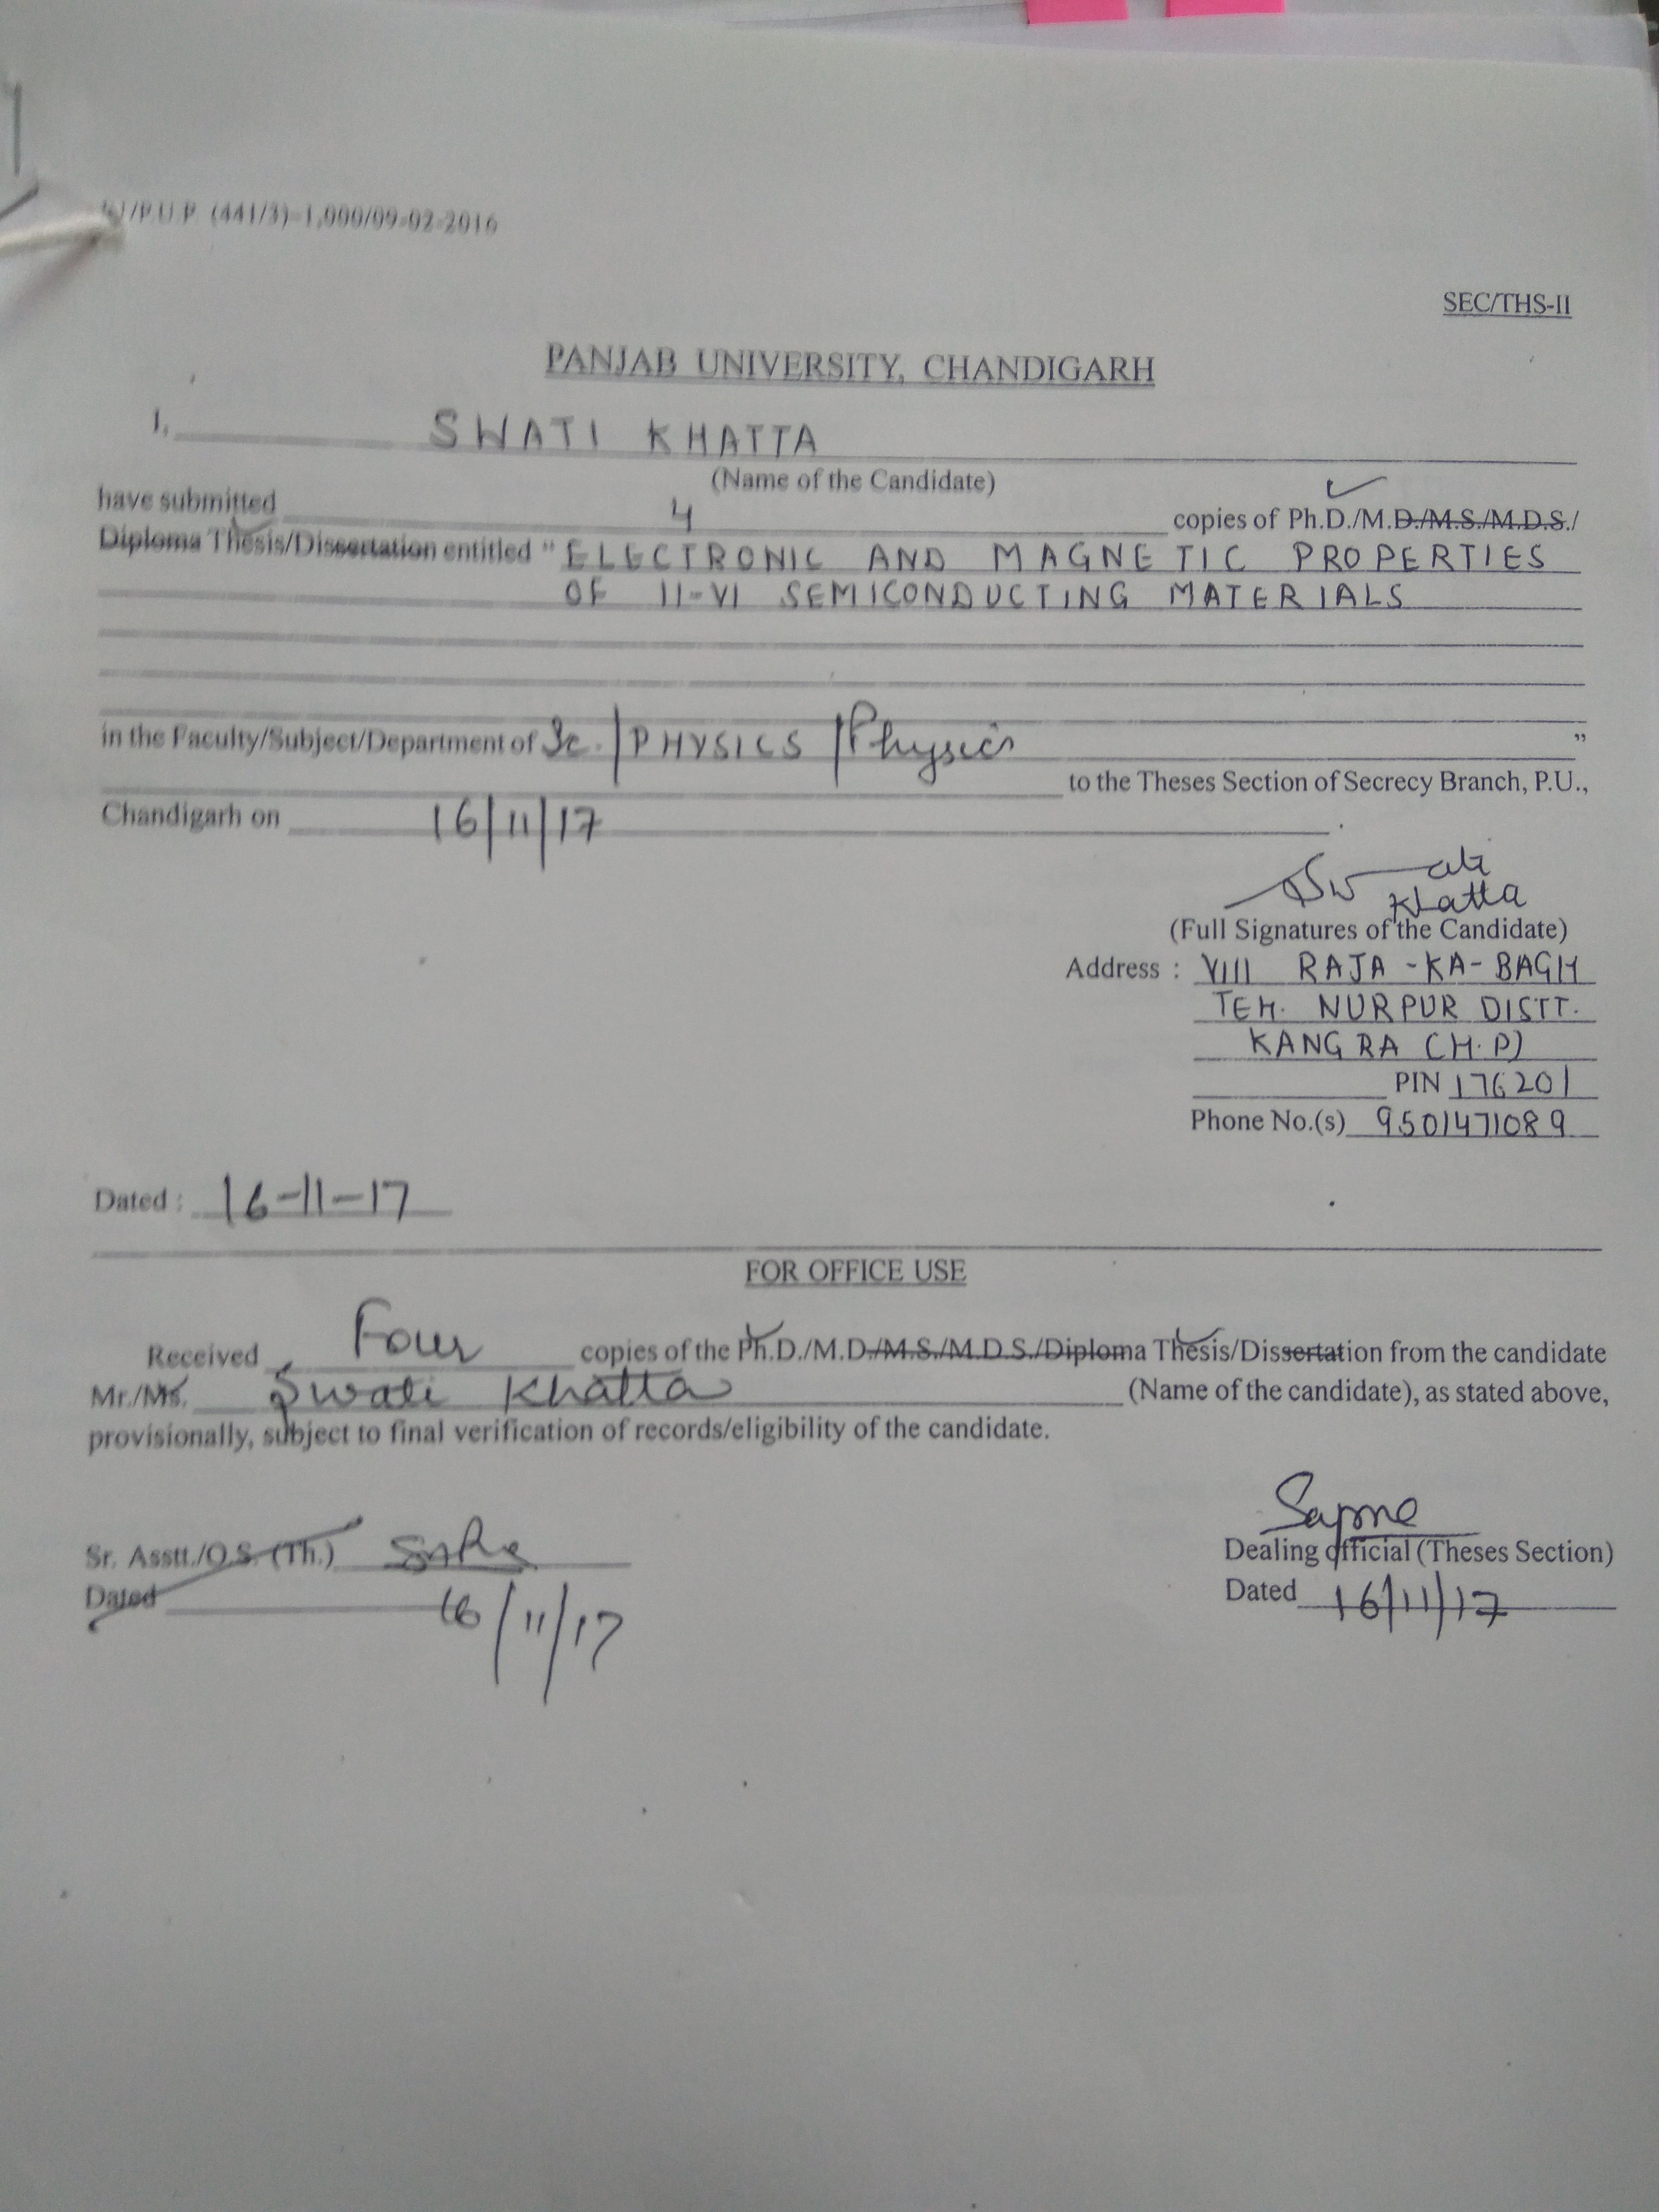 /P.U.P. (441/3)-1,000/09-02-2016
SEC/THS-II
PANJAB UNIVERSITY, CHANDIGARH
I, SWATI KHATTA
(Name of the Candidate)
have submitted 4 copies of Ph.D./M.D./M.S./M.D.S./
Diploma Thesis/Dissertation entitled " ELECTRONIC AND MAGNETIC PROPERTIES
OF II-VI SEMICONDUCTING MATERIALS
in the Faculty/Subject/Department of Sc. / PHYSICS / Physics "
to the Theses Section of Secrecy Branch, P.U.,
Chandigarh on 16/11/17 .
Swati
Khatta
(Full Signatures of the Candidate)
Address : VIII RAJA-KA-BAGH
TEH. NURPUR DISTT.
KANGRA (H.P)
PIN 176201
Phone No.(s) 9501471089
Dated : 16-11-17
FOR OFFICE USE
Received Four copies of the Ph.D./M.D./M.S./M.D.S./Diploma Thesis/Dissertation from the candidate
Mr./Ms. Swati Khatta (Name of the candidate), as stated above,
provisionally, subject to final verification of records/eligibility of the candidate.
Sapne
Sr. Asstt./O.S. (Th.)
Dealing official (Theses Section)
Dated 16/11/17
Dated 16/11/17